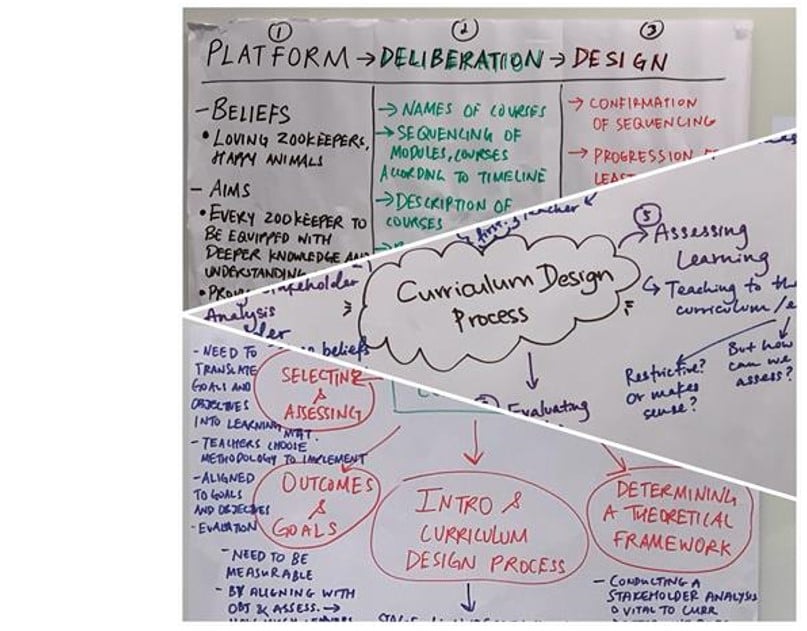 ① ② ③
PLATFORM → DELIBERATION → DESIGN
- BELIEFS
• LOVING ZOOKEEPERS,
HAPPY ANIMALS
- AIMS
• EVERY ZOOKEEPER TO
BE EQUIPPED WITH
DEEPER KNOWLEDGE AND
UNDERSTANDING
→ NAMES OF COURSES
→ SEQUENCING OF
MODULES, COURSES
ACCORDING TO TIMELINE
→ DESCRIPTION OF
COURSES
→ CONFIRMATION
OF SEQUENCING
→ PROGRESSION
LEAST
Analysis
beliefs
Curriculum Design
Process
Evaluating
⑤ Assessing
Learning
↳ Teaching to the
curriculum /
Restrictive?
or makes
sense?
But how
can we
assess?
- NEED TO
TRANSLATE
GOALS AND
OBJECTIVES
INTO LEARNING MAT.
- TEACHERS CHOOSE
METHODOLOGY TO IMPLEMENT
- ALIGNED
TO GOALS
AND OBJECTIVES
- EVALUATION
SELECTING
&
ASSESSING
OUTCOMES
&
GOALS
- NEED TO BE
MEASURABLE
- BY ALIGNING WITH
OBJ & ASSESS. →
INTRO &
CURRICULUM
DESIGN PROCESS
DETERMINING
A THEORETICAL
FRAMEWORK
- CONDUCTING A
STAKEHOLDER ANALYSIS
VITAL TO CURR